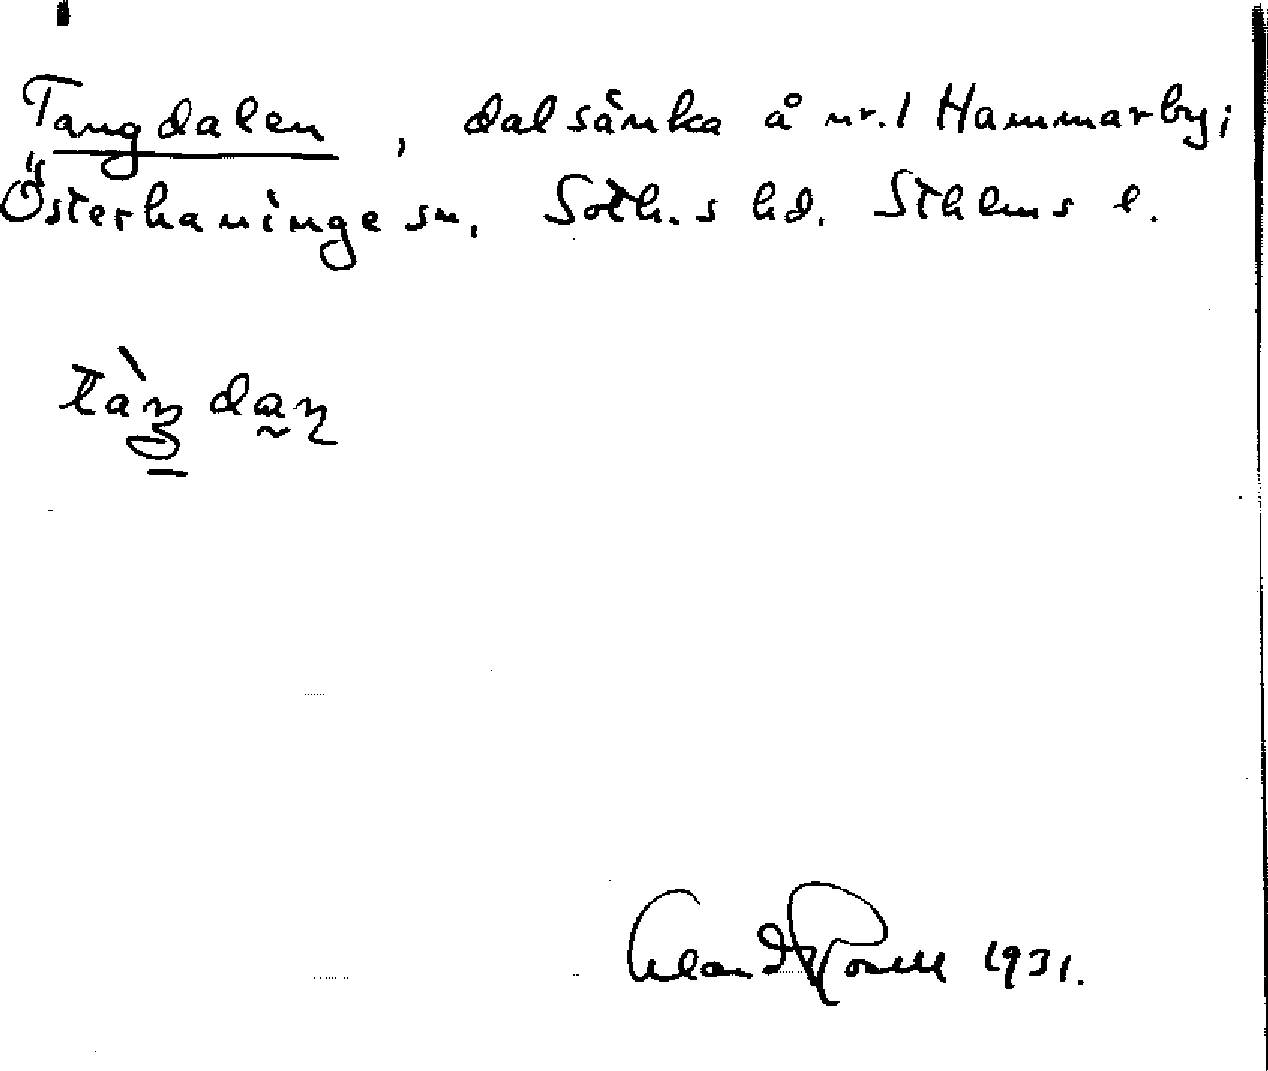 Tangdalen, dalsänka å nr. 1 Hammarby i
Österhaninge sn. Soth.s hd. Sthlms l.
1931.